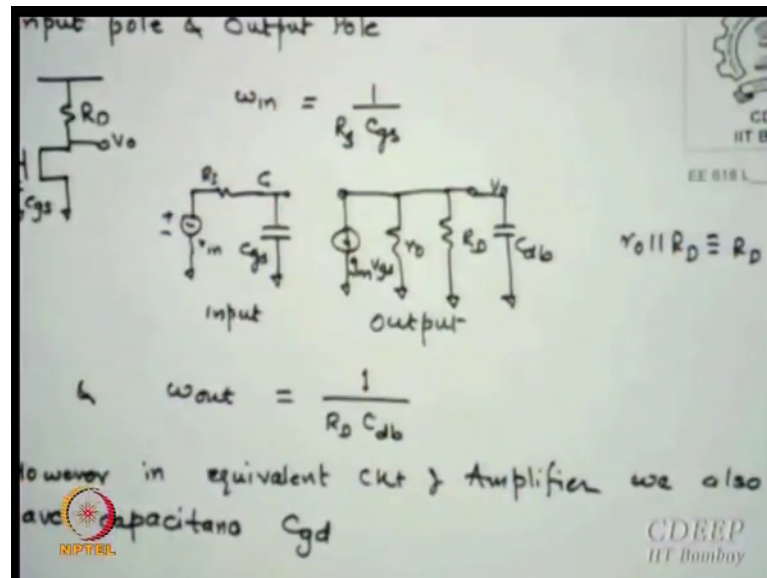 nput pole & Output Pole
RD
Vo
Cgs
ωin = 1 / Rs Cgs
CD
IIT B
EE 618 L
Rs G
+
-
vin
Cgs
Input
gmvgs
ro
RD
Vo
Cdb
Output
ro || RD ≡ RD
& ωout = 1 / RD Cdb
However in equivalent Ckt of Amplifier we also
ave capacitano Cgd
NPTEL
CDEEP
IIT Bombay